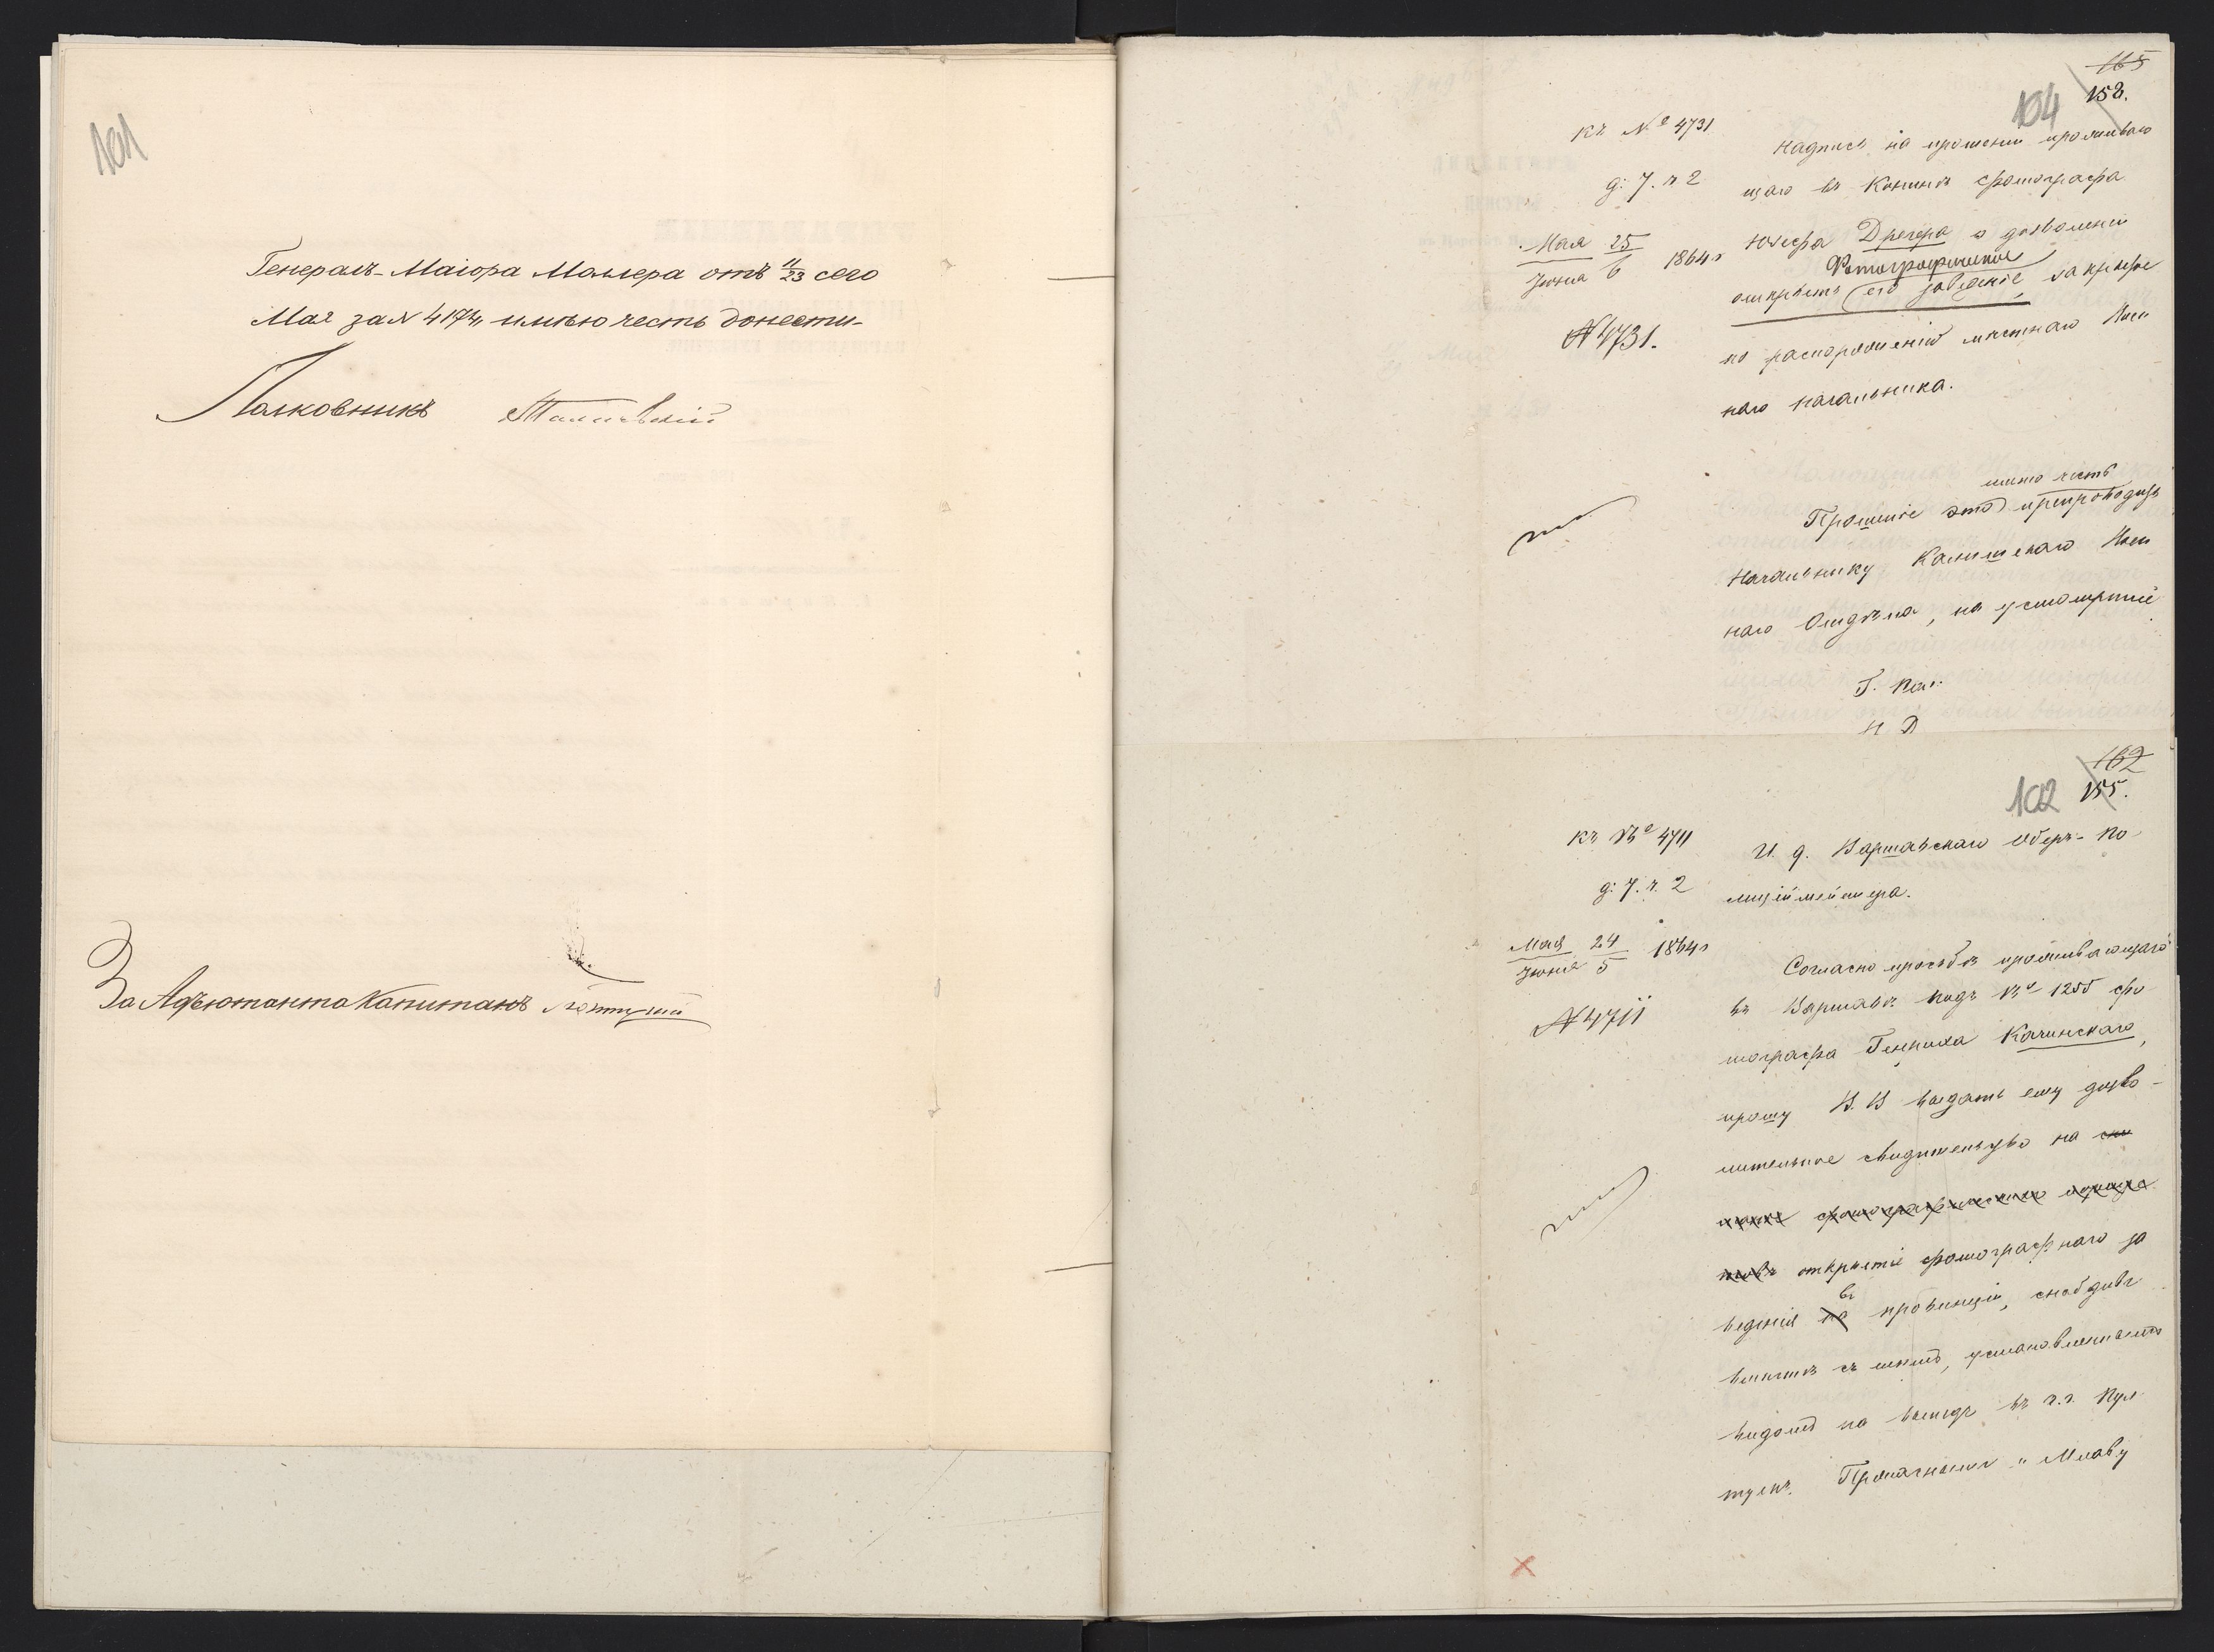 101
Генералъ-Маіора Моллера отъ 11/23 сего
Мая за N 4174, имѣю честь донести.
Полковникъ
За Адъютанта Капитанъ
165
104 158.
Къ № 4731
д: 7. ч 2
Мая 25
Іюня 6 1864 г
N 4731.
Надпись на прошеніи проживаю
щаго въ Конинѣ фотографа
Юзефа Дрегера о дозволеніи
Фотографическое
открыть его заведеніе, закрытое
по распоряженію мѣстнаго Воен
наго Начальника.
имѣю честь
Прошеніе это препроводить
Начальнику Калишскаго Воен
наго Отдѣла, на усмотрѣніе
Г. Кв.
Н Д
162
102 155.
Къ № 4711
д: 7. ч. 2
Мая 24
Іюня 5 1864 г
N 4711
И. д. Варшавскаго Оберъ-По
лиціймейстера.
Согласно просьбѣ проживающаго
въ Варшавѣ подъ № 1255 фо
тографа Генриха Качинскаго,
прошу В. В выдать ему дозво-
лительное свидѣтельство на сня
тіе фотографическихъ портре
товъ открытіе фотографнаго за
веденія на въ провинціи, снабдивъ
вмѣстѣ съ тѣмъ, установленнымъ
видомъ на выѣздъ въ г.г. Пул
тускъ, Праснышъ и Млаву